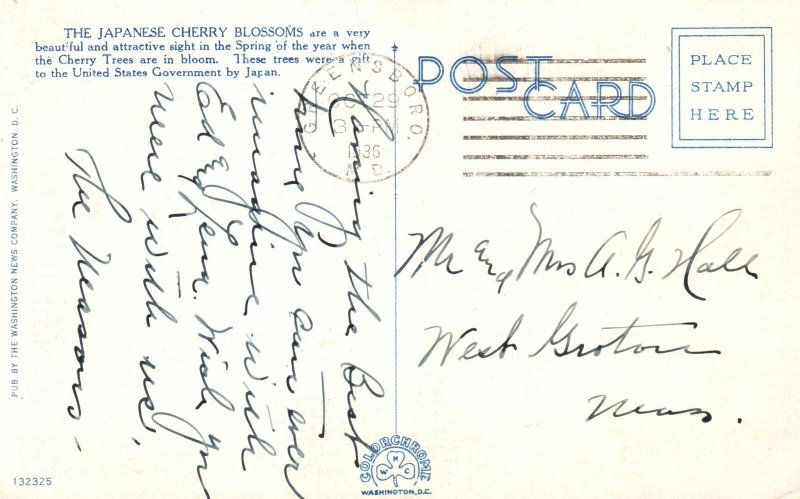 THE JAPANESE CHERRY BLOSSOMS are a very
beautiful and attractive sight in the Spring of the year when
the Cherry Trees are in bloom. These trees were a gift
to the United States Government by Japan.
POST CARD
PLACE
STAMP
HERE
GREENSBORO,
OCT 29
PM
1936
MD.
Having the Best
time yr can ever
imagine with
Ed & Lena. Wish yr
were with us.
The Masons.
Mr and Mrs A. G. Hall
West Groton
Mass.
PUB. BY THE WASHINGTON NEWS COMPANY, WASHINGTON D.C.
132325
COLORCHROME
W N C
WASHINGTON, D.C.